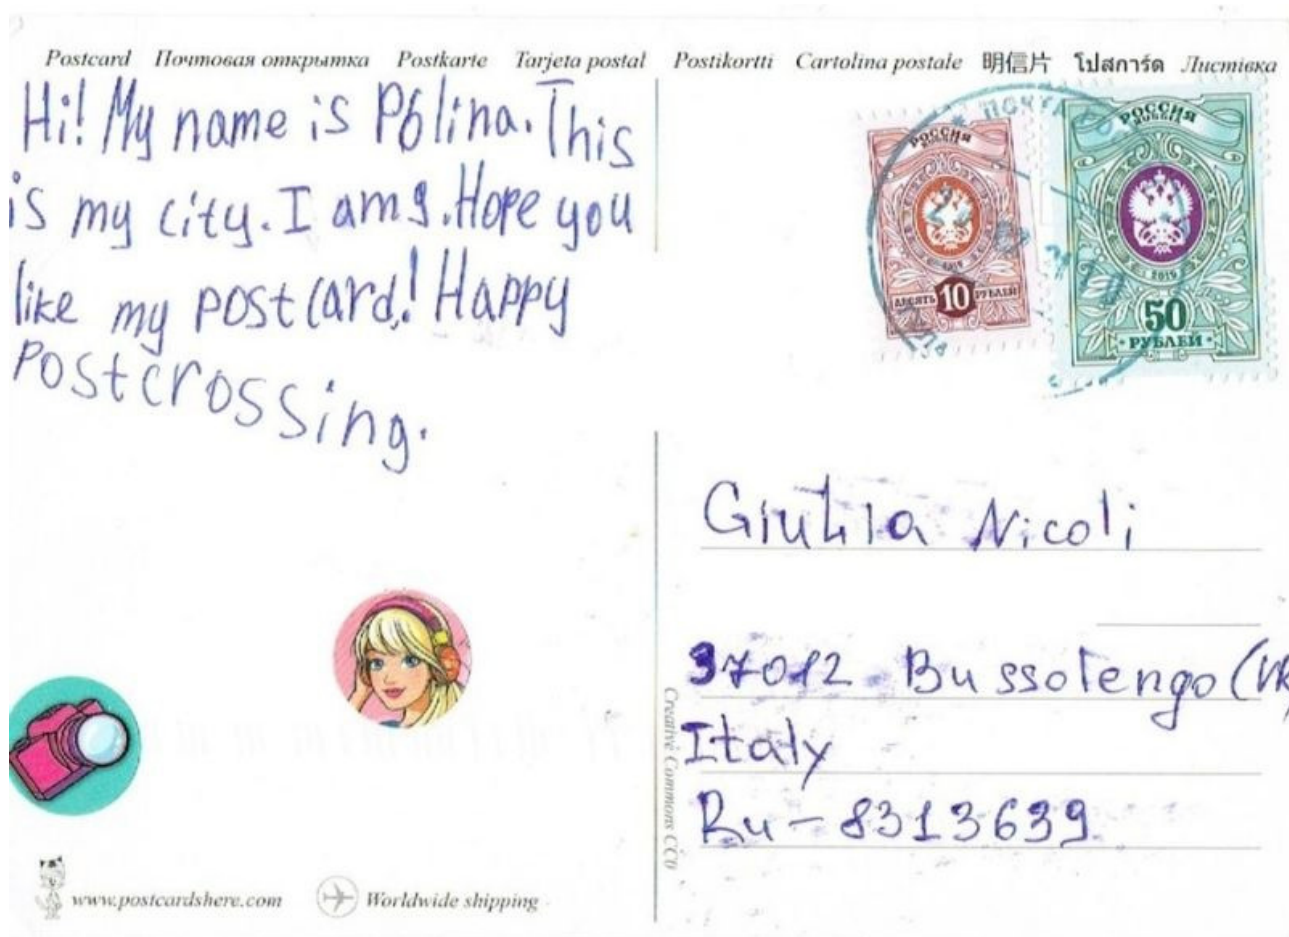 Postcard Почтовая открытка Postkarte Tarjeta postal Postikortti Cartolina postale 明信片 โปสการ์ด Листівка
Hi! My name is Pólina. This
is my city. I am 9. Hope you
like my postcard! Happy
Postcrossing.
РОССИЯ
RUSSIA
2019
ДЕСЯТЬ 10 РУБЛЕЙ
РОССИЯ
RUSSIA
2019
50
РУБЛЕЙ
Giulia Nicoli
37012 Bussolengo (VR
Italy
Ru-8313639
Creative Commons CC0
www.postcardshere.com
Worldwide shipping